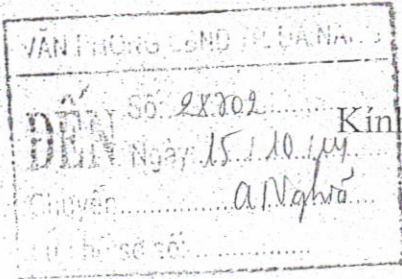 VĂN PHÒNG UBND TP. ĐÀ NẴNG
ĐẾN
Số:
Ngày: 15 / 10 /
Kính
Chuyển: a Nghĩa
Lưu hồ sơ số: